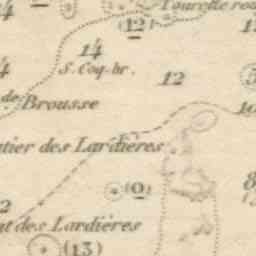 Tourelle
(12)
14
S. Coq. br.
12
de Brousse
10
tier des Lardières
(0)
8
2
t des Lardières
(13)